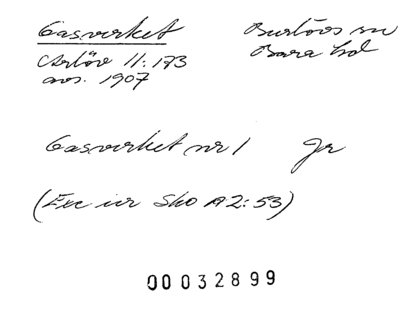 Gasverket Burlövs sn
Arlöv 11:173 Bara hd
avs. 1907
Gasverket nr 1 Jr
(Exc ur Sko A2:53)
00032899